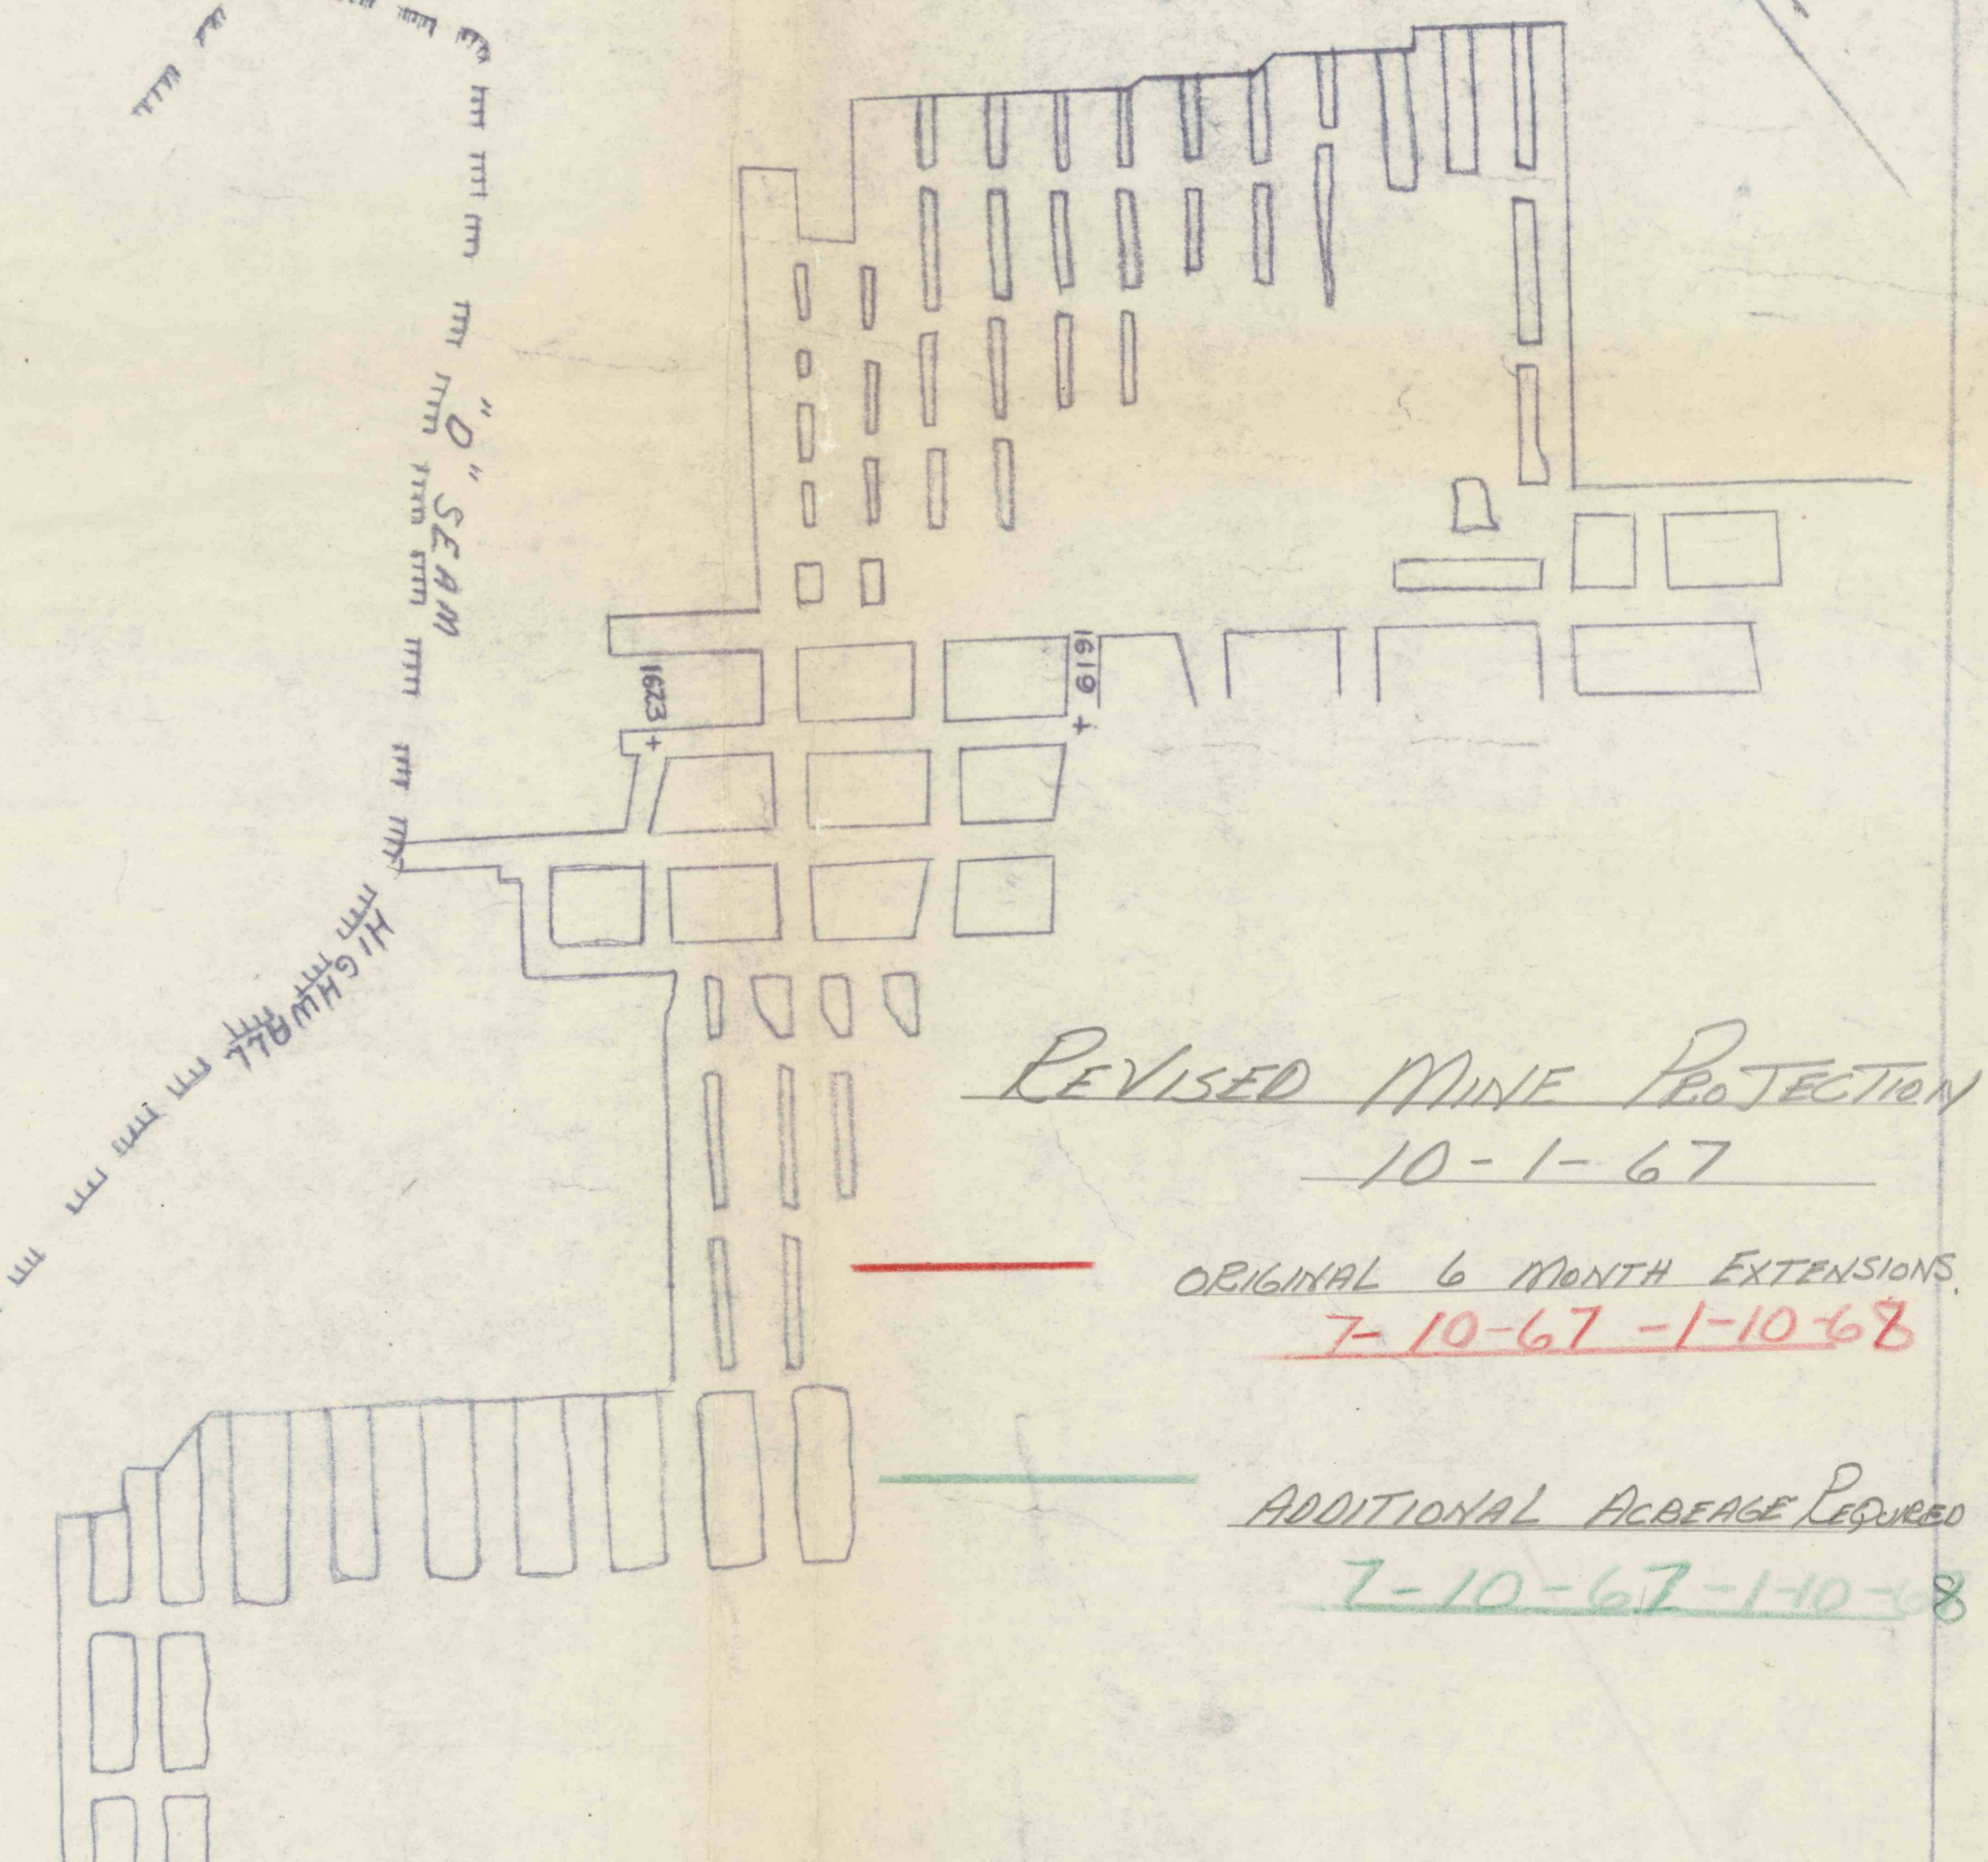 "D" SEAM
1623
1619
HIGHWALL
REVISED MINE PROJECTION
10-1-67
ORIGINAL 6 MONTH EXTENSIONS.
7-10-67 -1-10-68
ADDITIONAL ACREAGE REQUIRED
7-10-67-1-10-68